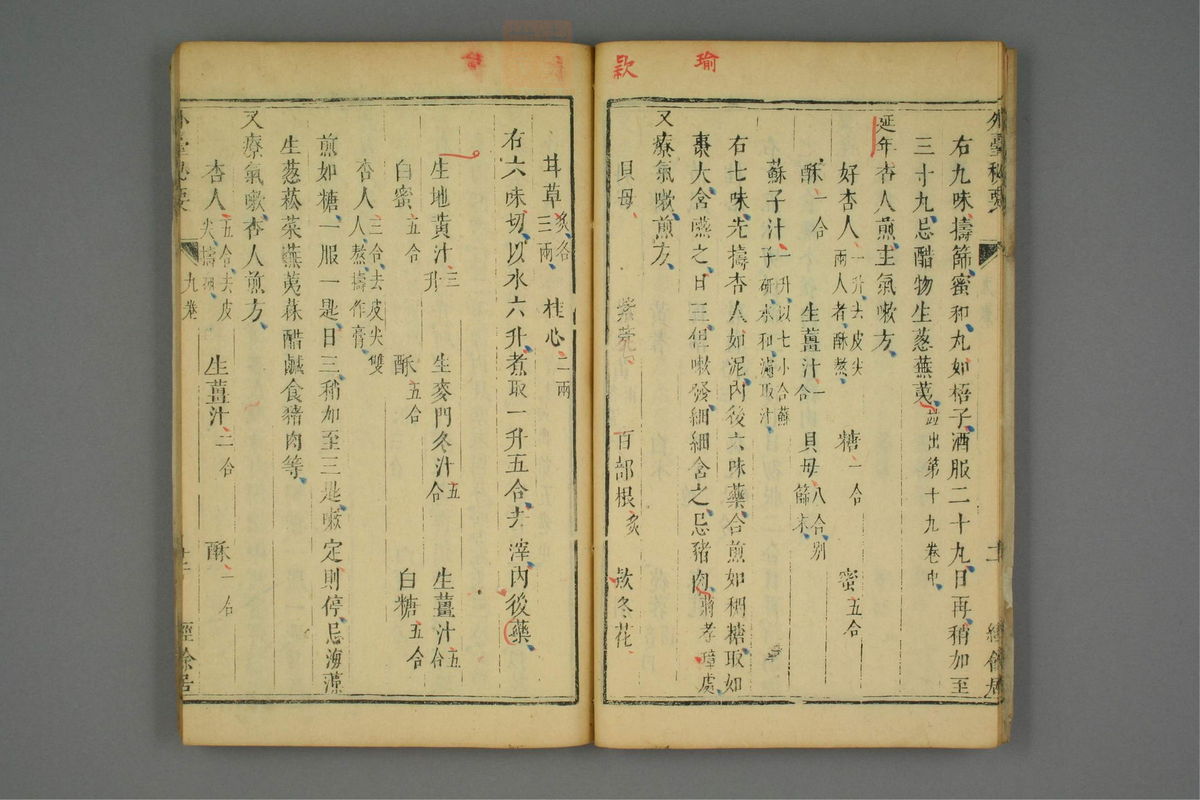 瑜
欵
右九味擣篩蜜和丸如梧子酒服二十九日再稍加至
三十九忌醋物生葱蕪荑 出第十九卷中
延年杏人煎主氣嗽方
好杏人一升去皮尖兩人者酥熬 糖一合 蜜五合
酥一合 生薑汁一合 貝母八合別篩末
蘇子汁一升以七小合蘇子研水和濾取汁
右七味先擣杏人如泥內後六味藥合煎如稠糖取如
棗大含嚥之日三但嗽發細細含之忌豬肉蔣孝璋處
又療氣嗽煎方
貝母 紫菀 百部根炙 欵冬花
甘草炙各三兩 桂心二兩
右六味切以水六升煮取一升五合去滓內後藥
生地黃汁三升 生麥門冬汁五合 生薑汁五合
白蜜五合 酥五合 白糖五合
杏人三合去皮尖雙人熬擣作膏
煎如糖一服一匙日三稍加至三匙嗽定則停忌海藻
生葱菘菜蕪荑菻醋鹹食豬肉等
又療氣嗽杏人煎方
杏人五合去皮尖擣 生薑汁二合 酥一合
外臺秘要
九卷
經餘居